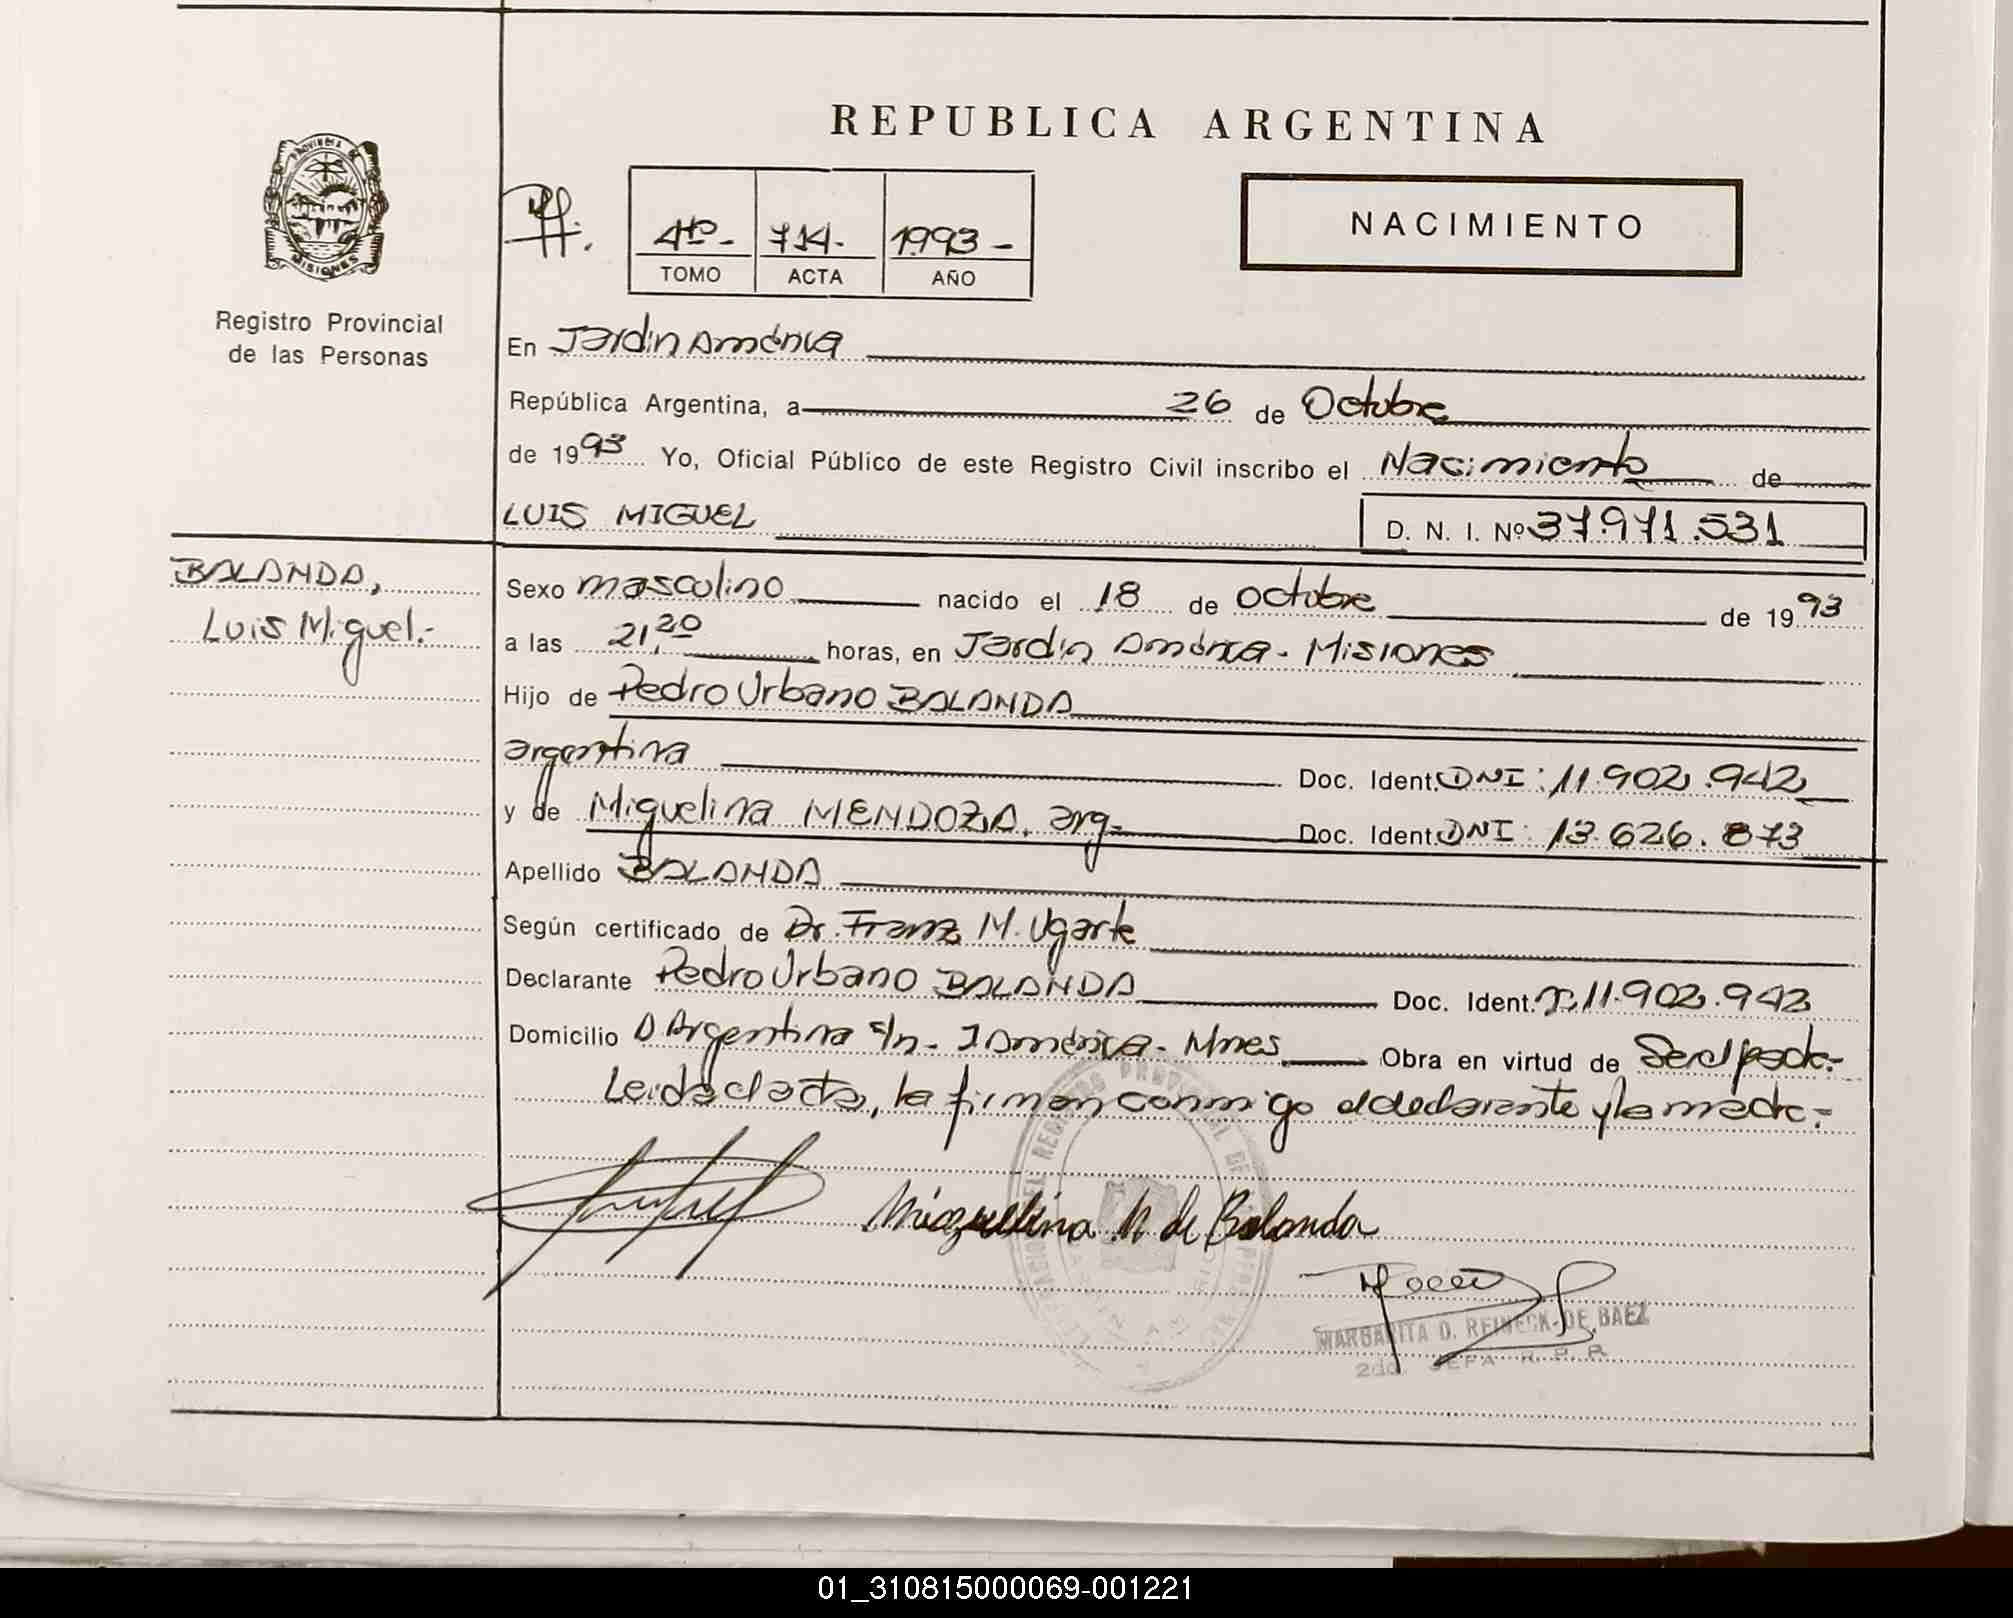 REPUBLICA ARGENTINA
PROVINCIA DE
MISIONES
Registro Provincial
de las Personas
4to- 714.- 1993-
TOMO ACTA AÑO
NACIMIENTO
En Jardin América
República Argentina, a 26 de Octubre
de 1993 Yo, Oficial Público de este Registro Civil inscribo el Nacimiento de
LUIS MIGUEL D. N. I. Nº 37.971.531
BALANDA,
Luis Miguel.-
Sexo masculino nacido el 18 de octubre de 1993
a las 21,20 horas, en Jardin América - Misiones
Hijo de Pedro Urbano BALANDA
argentina Doc. Ident. DNI: 11.902.942
y de Miguelina MENDOZA. arg- Doc. Ident. DNI: 13.626.873
Apellido BALANDA
Según certificado de Dr. Franz M. Ugarte
Declarante Pedro Urbano BALANDA Doc. Ident. 11.902.942
Domicilio A Argentina s/n - J América - Mnes Obra en virtud de Ser el padre.-
Leida el acta, la firman conmigo el declarante y la madre.-
Miguelina M de Balanda
MARGARITA D. REINECK DE BAEZ
2da. JEFA R. P. P.
01_310815000069-001221